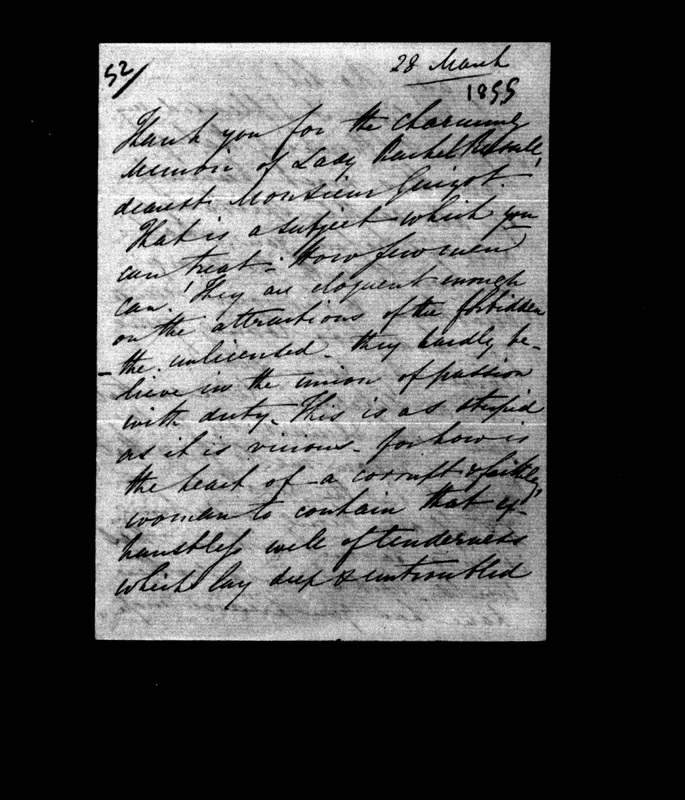 52/
28 March
1855
Thank you for the charming
Memoir of Lady Rachel Russell,
dearest Monsieur Guizot.
That is a subject which you
can treat - How few men
can! They are eloquent enough
on the attractions of the forbidden
- the unlicensed - they hardly be-
lieve in the union of passion
with duty - This is as stupid
as it is vicious - for how is
the heart of a corrupt & faithless
woman to contain that ex-
haustless well of tenderness
which lay deep & untroubled